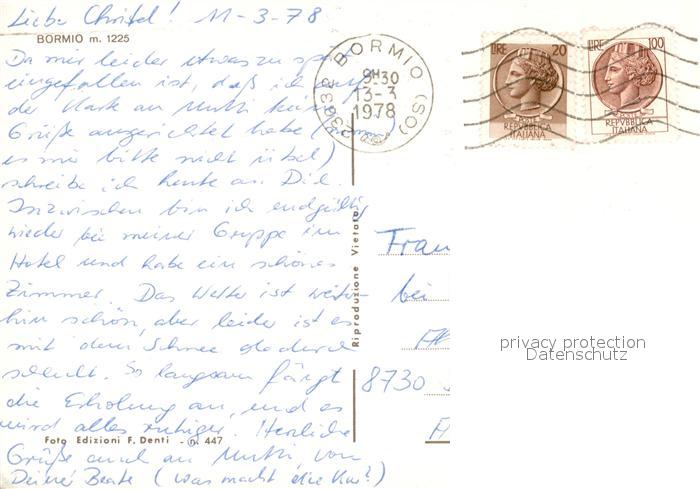 Liebe Christel! 11-3-78
BORMIO m. 1225
Da mir leider etwas zu spät
eingefallen ist, daß ich auf
der Karte an Mutti keine
Grüße ausgerichtet habe (nimm
es mir bitte nicht übel)
schreibe ich heute an Dich.
Inzwischen bin ich endgültig
wieder bei meiner Gruppe im
Hotel und habe ein schönes
Zimmer. Das Wetter ist weiter-
hin schön, aber leider ist es
mit dem Schnee dadurch
schlecht. So langsam fängt
die Erholung an, und es
wird alles ruhiger. Herzliche
Foto Edizioni F. Denti - n. 447
Grüße auch an Mutti, von
Deiner Beate (was macht die Kur?)
Riproduzione Vietata
23032 BORMIO (SO)
9H30
13-3
1978
LIRE 20
POSTE
REPVBBLICA
ITALIANA
LIRE 100
POSTE
REPVBBLICA
ITALIANA
Frau
bei
8730
privacy protection
Datenschutz